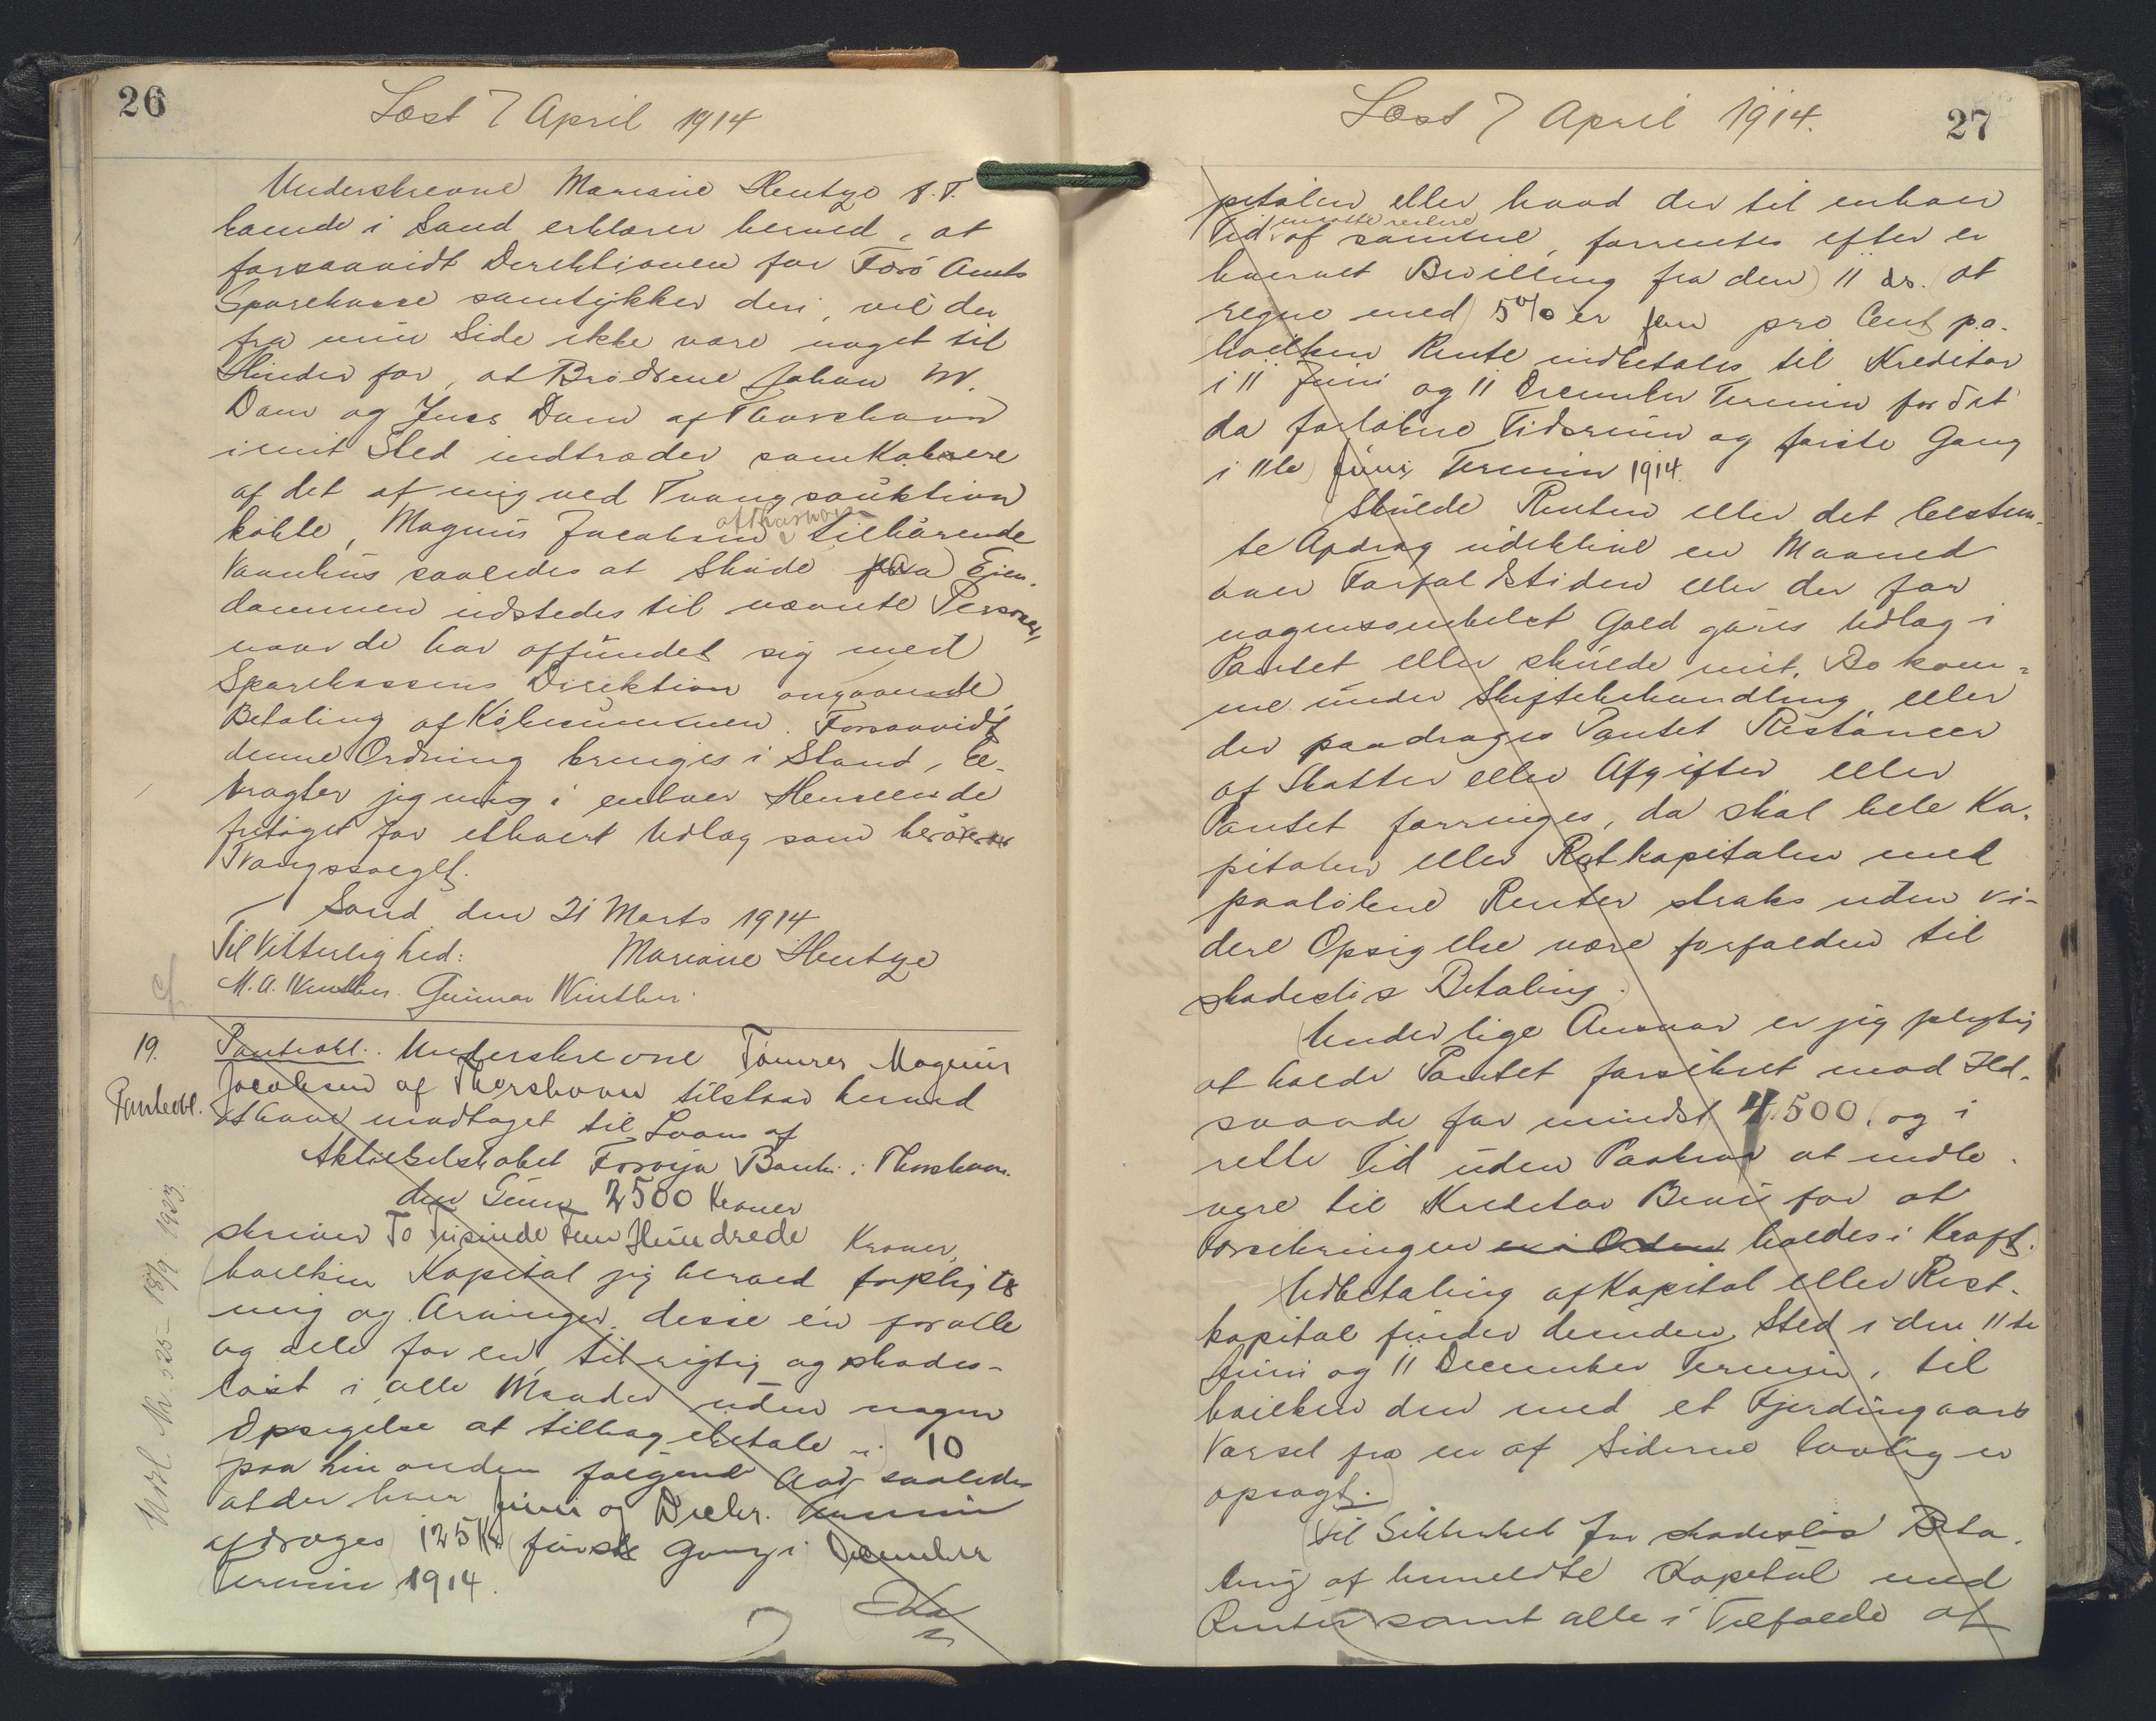 26
Læst 7 April 1914
Underskrevne Mariane Hentze p.T.
havende i Sand erklærer herved, at
forsaavidt Direktionen for Færö Amts
Sparekasse samtykker deri, vil der
fra min Side ikke være noget til
Hinder for, at Brödrene Johan M.
Dam og Jens Dam af Thorshavn
i mit Sted indtræder som Köbere
af det af mig ved Tvangsauktion
köbte, Magnus Jacobsen af Thorshavn tilhörende
Vaanhus saaledes at Sköde paa Eien-
dommen udstedes til nævnte Personer,
naar de har affundet sig med
Sparekassens Direktion angaaende
Betaling af Köbesummen. Forsaavidt
denne Ordning bringes i Stand, be-
tragter jeg mig i enhver Henseende
fritaget for ethvert Udlæg som berörer
Tvangssalget.
Sand, den 21 Marts 1914
Til Vitterlighed: Mariane Hentze
M.A. Winther. Gunnar Winther.
19.
Panteobl.
Panteobl. Underskrevne Tömrer Magnus
Jacobsen af Thorshavn tilstaar herved
at have modtaget til Laans af
Aktieselskabet Foroya Banki i Thorshavn
den Sum 2500 Kroner
skriver To Tusinde Fem Hundrede Kroner,
hvilken Kapital jeg herved forpligter
mig og Arvinger, desse én for alle
og alle for en, til rigtig og skades-
löst i alle Maader uden nogen
Opsigelse at tilbagebetale i 10
paa hinanden fölgende Aar saaledes
at der hver Juni og Decbr. Termin
afdrages 125 Kr förste Gang i December
Termin 1914.
Ka
Udsl. Nr. 225 - 18/9 1923.
Læst 7 April 1914.
27
pitalen eller hvad der til enhver
Tid maatte restere af samme, forrentes efter er
hvervet Bevilling fra den 11 ds. at
regne med 5% er fem pro Cent p.a.
hvilken Rente indbetales til Kreditor
i 11 Juni og 11 December Termin for det
da forlöbne Tidsrum og förste Gang
i 11te Juni Termin 1914.
Skulde Renten eller det bestem-
te Afdrag udeblive en Maaned
over Forfaldstiden eller der for
nogensomhelst Gæld göres Udlæg i
Pantet eller skulde mit Bo kom=
me under Skiftebehandling eller
der paadrages Pantet Restancer
af Skatter eller Afgifter eller
Pantet forringes, da skal hele Ka-
pitalen eller Restkapitalen med
paalöbne Renter straks uden vi-
dere Opsigelse være forfalden til
skadeslös Betaling.
Under lige Ansvar er jeg pligtig
at holde Pantet forsikret mod Ild-
svaade for mindst 4.500. og i
rette Tid uden Paakrav at indle-
vere til Kreditor Bevis for at
Forsikringen er i Orden holdes i Kraft.
Udbetaling af Kapital eller Rest-
kapital finder desuden Sted i den 11te
Juni og 11 December Termin, til
hvilken den med et Fjerdingaars
Varsel fra en af Siderne lovlig er
opsagt.
Til Sikkerhed for skadeslös Beta-
ling af anmeldte Kapital med
Renter samt alle i Tilfælde af